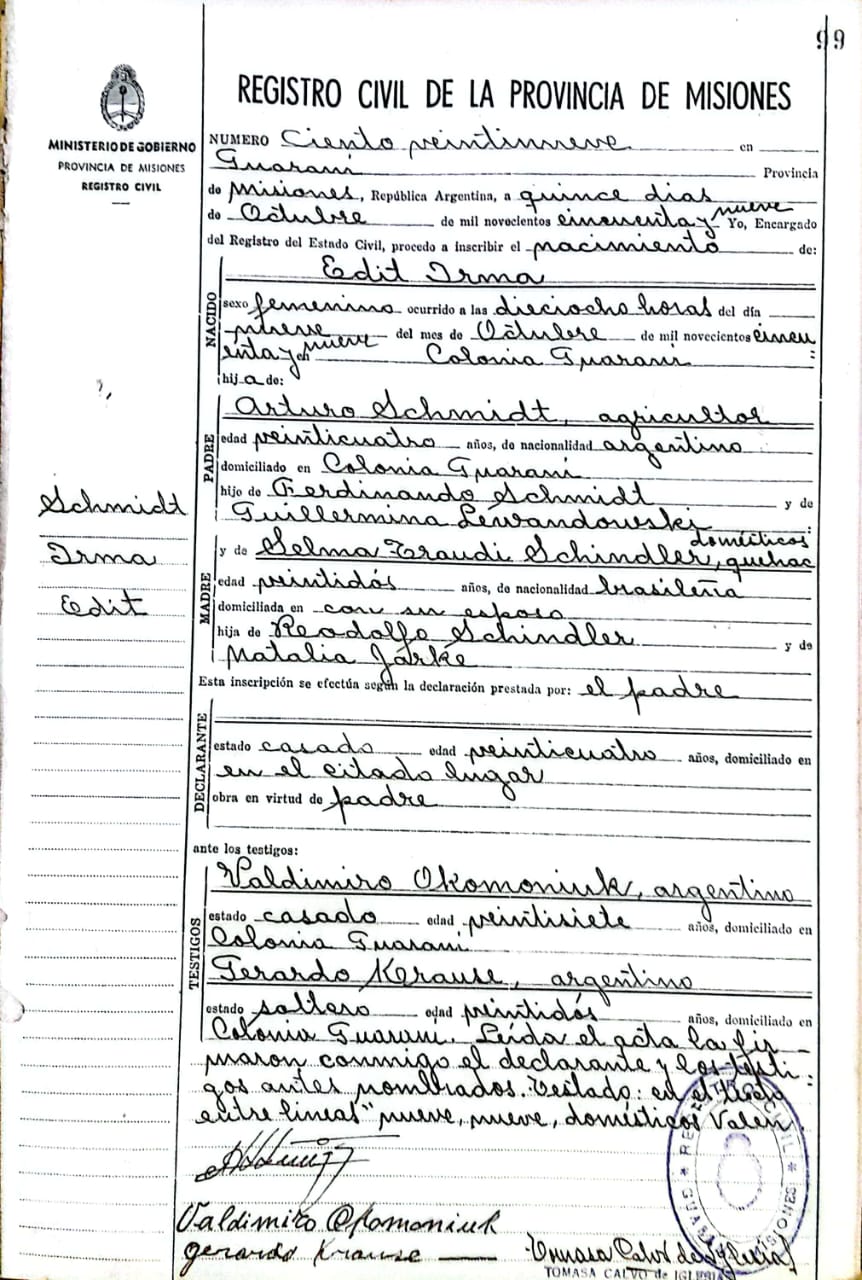 99
REGISTRO CIVIL DE LA PROVINCIA DE MISIONES
MINISTERIO DE GOBIERNO
PROVINCIA DE MISIONES
REGISTRO CIVIL
NUMERO Ciento veintinueve en
Guaraní Provincia
de Misiones, República Argentina, a quince dias
de Octubre de mil novecientos cincuenta y nueve Yo, Encargado
del Registro del Estado Civil, procedo a inscribir el nacimiento de:
NACIDO
Edit Irma
sexo femenino ocurrido a las dieciocho horas del día
nueve del mes de Octubre de mil novecientos cincu
enta y nueve en Colonia Guaraní
hija de:
PADRE
Arturo Schmidt, agricultor
edad veinticuatro años, de nacionalidad argentino
domiciliado en Colonia Guaraní
hijo de Ferdinando Schmidt y de
Guillermina Lewandowski
Schmidt
Irma
Edit
MADRE
domésticos
y de Selma Traudi Schindler, quehac
edad veintidós años, de nacionalidad brasileña
domiciliada en con su esposo
hija de Reodolfo Schindler y de
Natalia Jarke
Esta inscripción se efectúa según la declaración prestada por: el padre
DECLARANTE
estado casado edad veinticuatro años, domiciliado en
en el citado lugar
obra en virtud de padre
ante los testigos:
TESTIGOS
Valdimiro Okomoniuk, argentino
estado casado edad veintisiete años, domiciliado en
Colonia Guaraní
Gerardo Krause, argentino
estado soltero edad veintidós años, domiciliado en
Colonia Guaraní. Leída el acta la fir
maron conmigo el declarante y los testi
gos antes nombrados. Testado: en el
entre lineas" nueve, nueve, domésticos Valen
Valdimiro Okomoniuk
Gerardo Krause
Tomasa Calvo de Iglesias
TOMASA CALVO de IGLESIAS